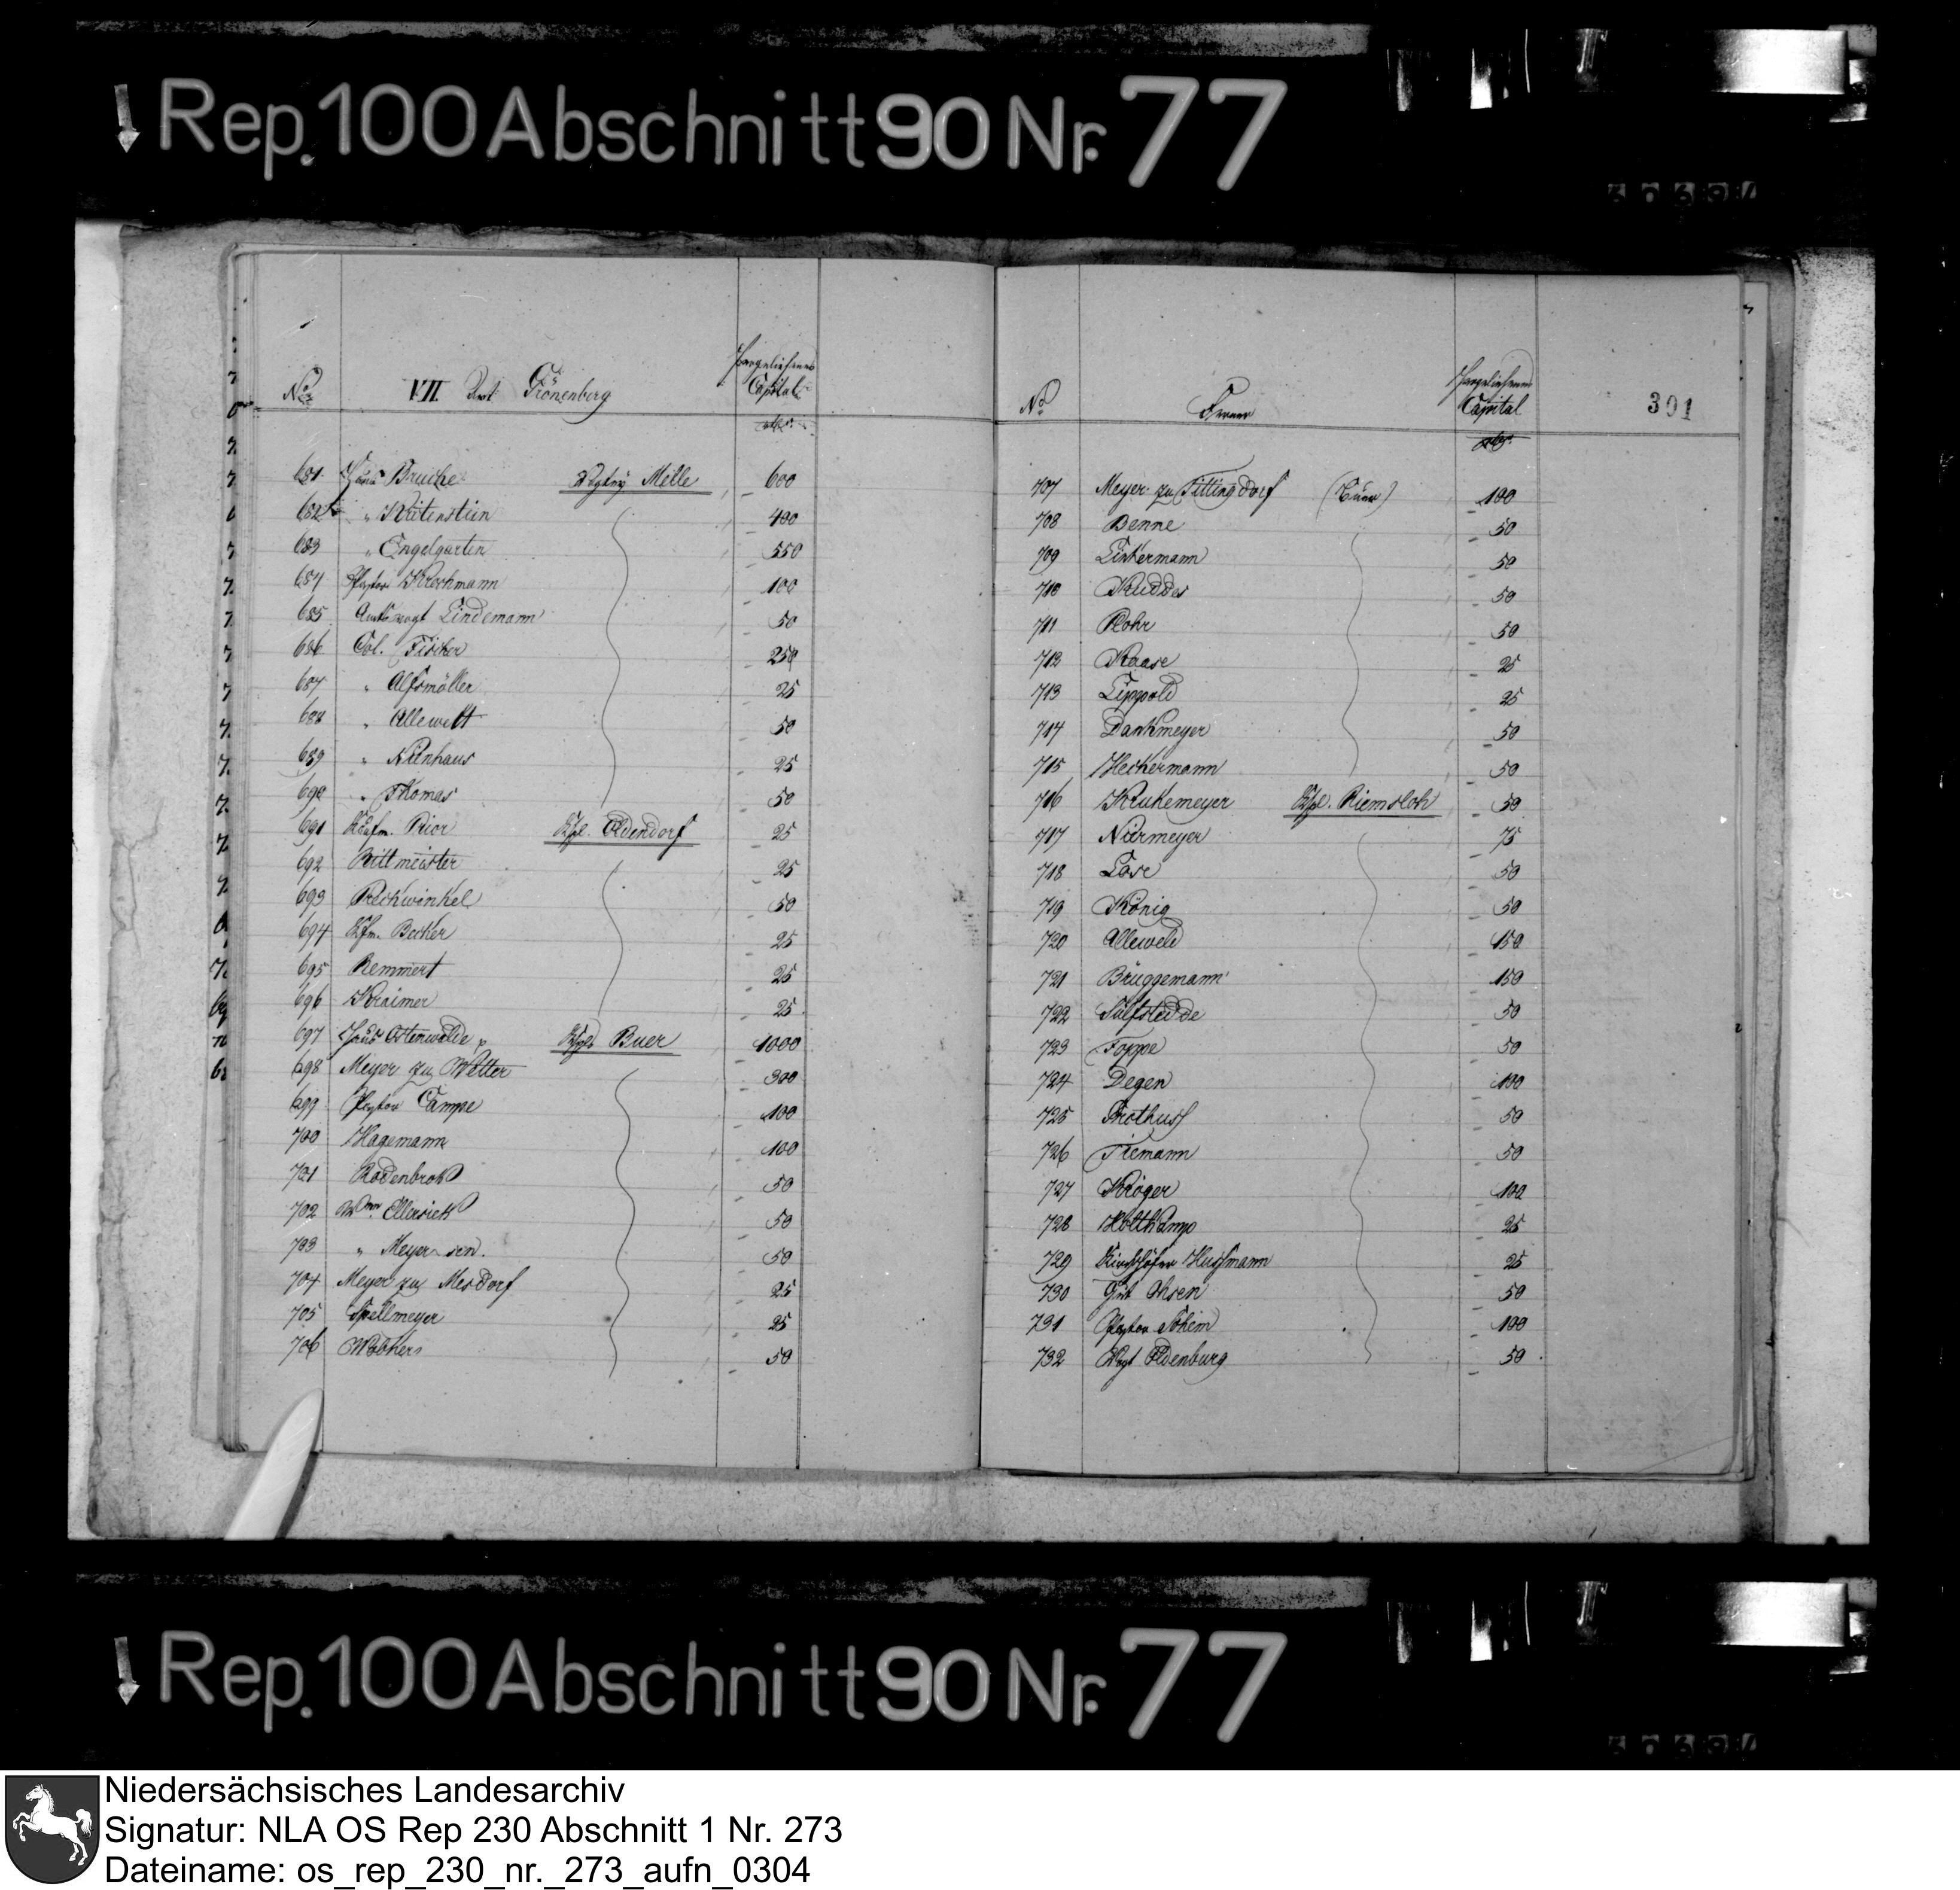 Rep. 100 Abschnitt 90 Nr. 77
No. VII Amt Grönenberg Hergeliehenes Capital
681. Haus Bruche Vogtey Melle 600
682 " Krietenstein 400
683 " Engelgarten 550
684 Pastor Kirchmann 100
685 Amtsvogt Lindemann 50
686 Col. Fischer 250
687 " Alfsmöller 25
688 " Allewelt 50
689 " Nienhaus 25
690 " Thomas 50
691 Kaufm. Rior Kspl. Oldendorf 25
692 Rittmeister 25
693 Reckwinkel 50
694 Kfm. Becker 25
695 Remmert 25
696 Kraimer 25
697 Haus Ostenwalde Kspl. Buer 1000
698 Meyer zu Wetter 300
699 Pastor Campe 100
700 Hagemann 100
701 Rodenbrok 50
702 Ellersiek 50
703 " Meyer sen. 50
704 Meyer zu Mesdorf 25
705 Spellmeyer 25
706 Wobkers 50
No Ferner Hergeliehenes Capital
301
707 Meyer zu Tittingdorf (Buer) 100
708 Benne 50
709 Linkermann 50
710 Kudder 50
711 Rohr 50
712 Kaase 25
713 Lippold 25
714 Dankmeyer 50
715 Heckermann 50
716 Krukemeyer Kspl. Riemsloh 50
717 Niermeyer 75
718 Lose 50
719 König 50
720 Alleweld 150
721 Brüggemann 150
722 Salfstedde 50
723 Foppe 50
724 Degen 100
725 Brothus 50
726 Tiemann 50
727 Kröger 100
728 Holtkamp 25
729 Kirchhöfer Husmann 25
730 Gut Ohsen 50
731 Pastor Sohein 100
732 Vogt Oldenburg 50
Rep. 100 Abschnitt 90 Nr. 77
Niedersächsisches Landesarchiv
Signatur: NLA OS Rep 230 Abschnitt 1 Nr. 273
Dateiname: os_rep_230_nr._273_aufn_0304